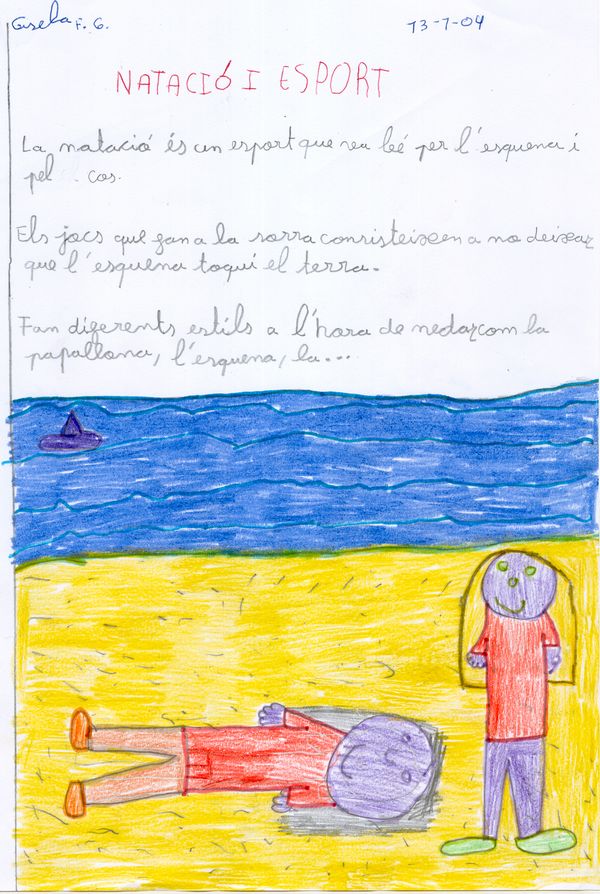 Gisela F. G. 13-7-04
NATACIÓ I ESPORT
La natació és un esport que va bé per l'esquena i
pel cos.
Els jocs que fan a la sorra consisteixen a no deixar
que l'esquena toqui el terra.
Fan diferents estils a l'hora de nedar com la
papallona, l'esquena, la...